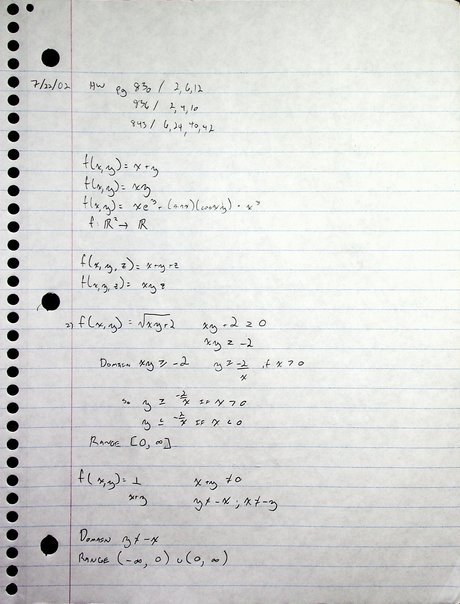 7/22/02 HW pg 830 / 2, 6, 12
836 / 2, 4, 10
843 / 6, 24, 40, 42
f(x,y) = x + y
f(x,y) = xy
f(x,y) = xe^y + (cosxy) - x^y
f: ℝ² → ℝ
f(x,y,z) = x+y+z
f(x,y,z) = xyz
2) f(x,y) = √xy+2 xy + 2 ≥ 0
xy ≥ -2
DOMAIN xy ≥ -2 y ≥ -2/x if x > 0
so y ≥ -2/x IF x > 0
y ≤ -2/x IF x < 0
RANGE [0, ∞]
f(x,y) = 1/x+y x+y ≠ 0
y ≠ -x ; x ≠ -y
DOMAIN y ≠ -x
RANGE (-∞, 0) ∪ (0, ∞)